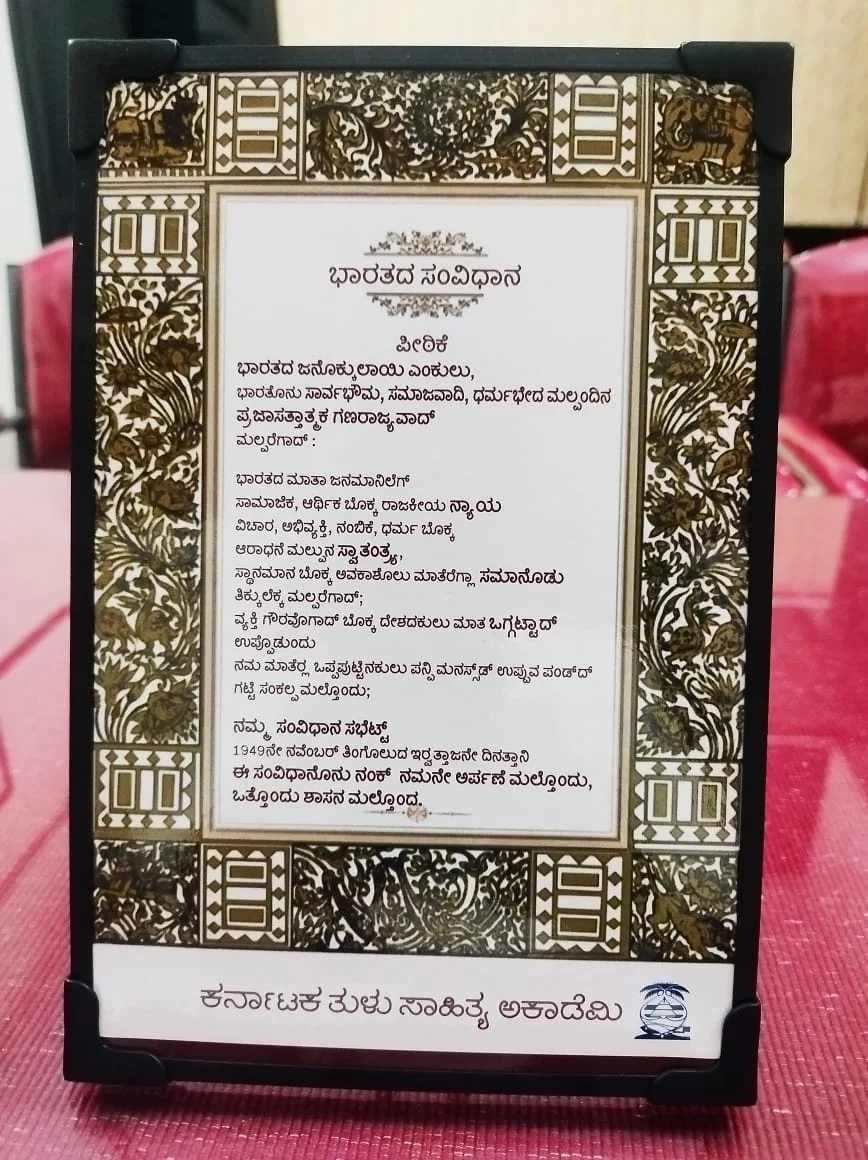 ಭಾರತದ ಸಂವಿಧಾನ
ಪೀಠಿಕೆ
ಭಾರತದ ಜನೊಕ್ಕುಲಾಯಿ ಎಂಕುಲು,
ಭಾರತೊನು ಸಾರ್ವಭೌಮ, ಸಮಾಜವಾದಿ, ಧರ್ಮಭೇದ ಮಲ್ಪಂದಿನ
ಪ್ರಜಾಸತ್ತಾತ್ಮಕ ಗಣರಾಜ್ಯವಾದ್
ಮಲ್ಪರೆಗಾದ್ :
ಭಾರತದ ಮಾತಾ ಜನಮಾನಿಲೆಗ್
ಸಾಮಾಜಿಕ, ಆರ್ಥಿಕ ಬೊಕ್ಕ ರಾಜಕೀಯ ನ್ಯಾಯ
ವಿಚಾರ, ಅಭಿವ್ಯಕ್ತಿ, ನಂಬಿಕೆ, ಧರ್ಮ ಬೊಕ್ಕ
ಆರಾಧನೆ ಮಲ್ಪುನ ಸ್ವಾತಂತ್ರ್ಯ,
ಸ್ಥಾನಮಾನ ಬೊಕ್ಕ ಅವಕಾಶೊಲು ಮಾತೆರೆಗ್ಲಾ ಸಮಾನೊಡು
ತಿಕ್ಕುಲೆಕ್ಕ ಮಲ್ಪರೆಗಾದ್;
ವ್ಯಕ್ತಿ ಗೌರವೊಗಾದ್ ಬೊಕ್ಕ ದೇಶದಕುಲು ಮಾತ ಒಗ್ಗಟ್ಟಾದ್
ಉಪ್ಪೊಡುಂದು
ನಮ ಮಾತೆರ್ಲ ಒಪ್ಪಪುಟ್ಟಿನಕುಲು ಪನ್ಪಿ ಮನಸ್ಸ್‌ಡ್ ಉಪ್ಪುವ ಪಂಡ್‌ದ್
ಗಟ್ಟಿ ಸಂಕಲ್ಪ ಮಲ್ತೊಂದು;
ನಮ್ಮ ಸಂವಿಧಾನ ಸಭೆಟ್ಟ್
1949ನೇ ನವೆಂಬರ್ ತಿಂಗೊಲುದ ಇರ್‍ವತ್ತಾಜನೇ ದಿನತ್ತಾನಿ
ಈ ಸಂವಿಧಾನೊನು ನಂಕ್ ನಮನೇ ಅರ್ಪಣೆ ಮಲ್ತೊಂದು,
ಒತ್ತೊಂದು ಶಾಸನ ಮಲ್ತೊಂದ.
ಕರ್ನಾಟಕ ತುಳು ಸಾಹಿತ್ಯ ಅಕಾಡೆಮಿ